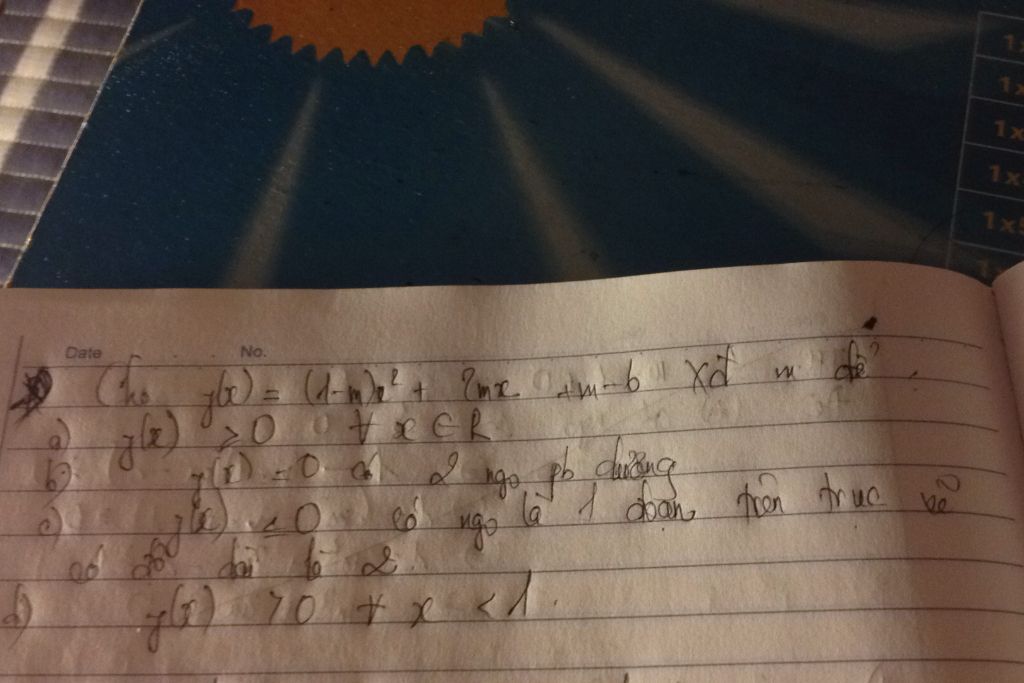 1x
1x
1x
1x
1x5
1x
Date No.
Cho y(x) = (1-m)x² + 2mx + m - 6 Xđ m để :
a) y(x) ≥ 0 ∀ x ∈ R
b) y(x) = 0 có 2 ngo pb dương
c) y(x) ≤ 0 có ngo là 1 đoạn trên trục số
có độ dài là 2.
d) y(x) > 0 ∀ x < 1.